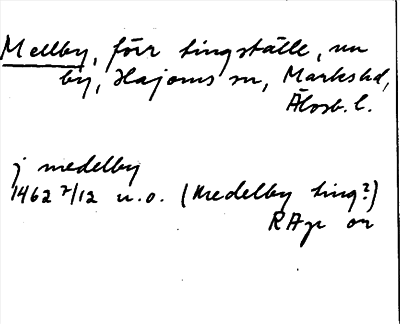 Mellby, förr tingställe, nu
by, Hajoms sn, Markshd,
Älvsb. l.
j medelby
1462 7/12 u.o. (Medelby ting?)
RAp or